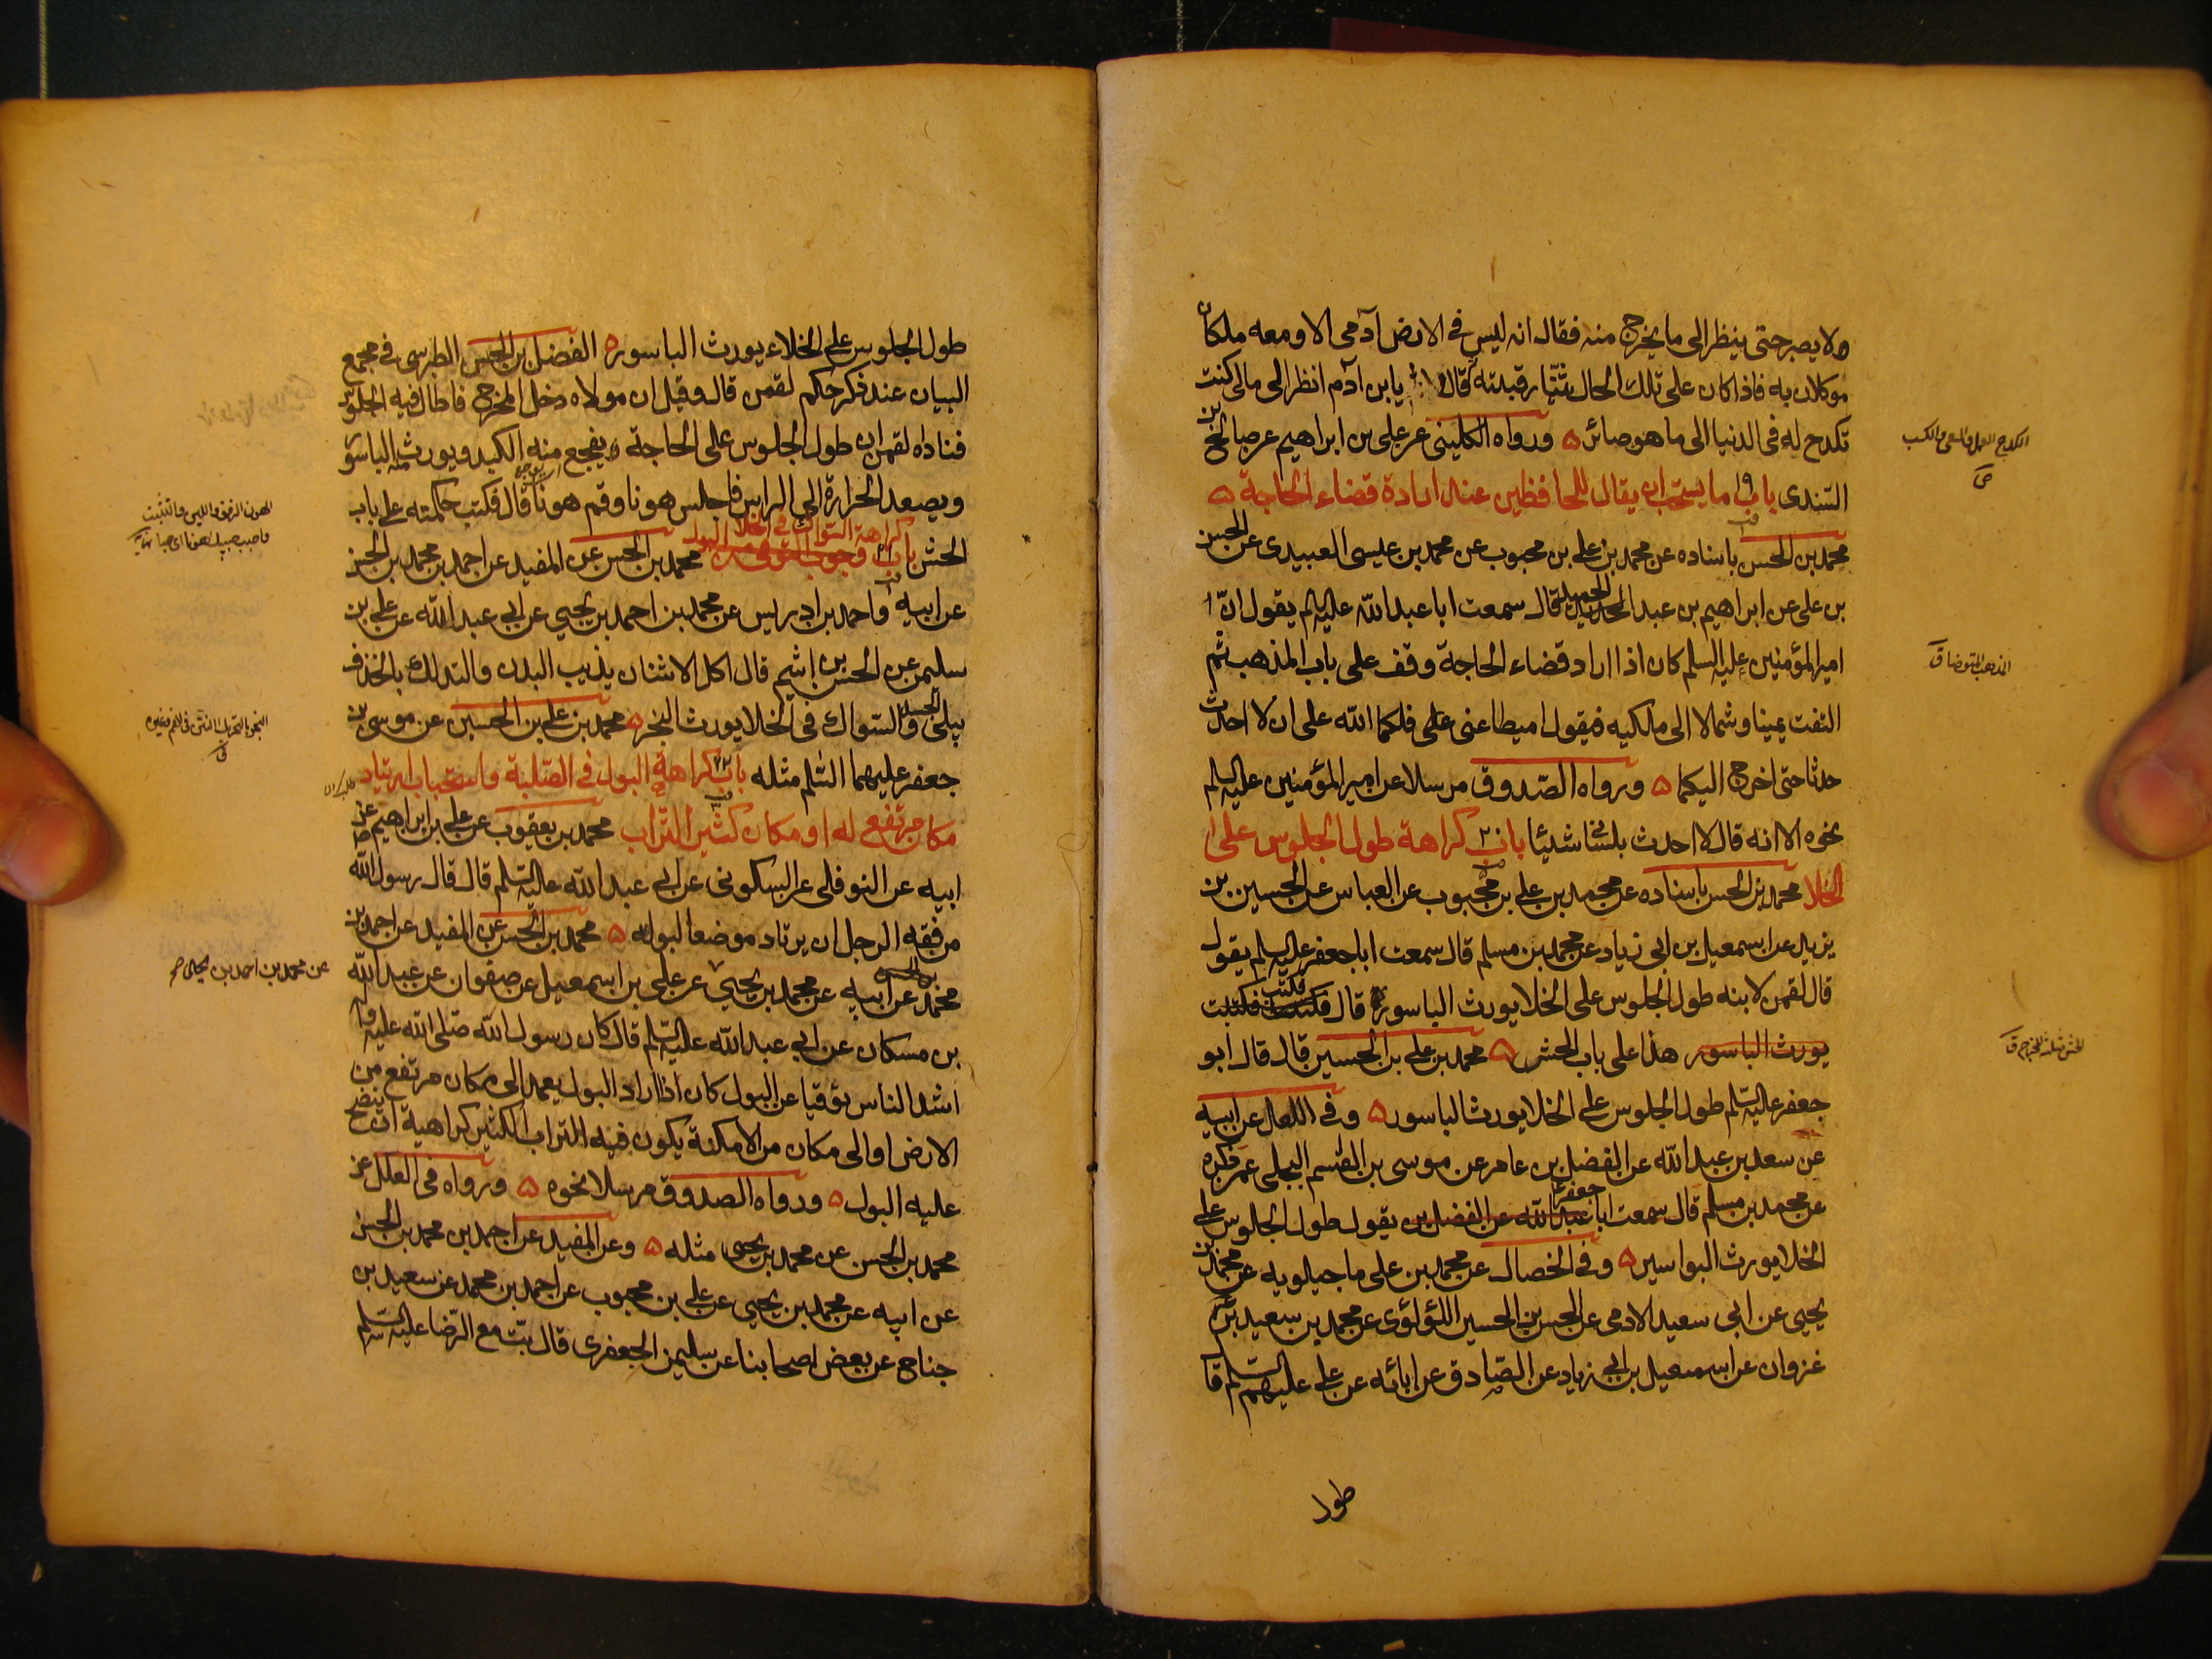 ولا يصبر حتى ينظر الى ما يخرج منه فقال انه ليس في الارض آدمى الا ومعه ملكان
موكلان به فاذا كان على تلك الحال ثنيا رقبته قالا يابن آدم انظر الى ما كنت
تكدح له فى الدنيا الى ما هو صائر ٥ ورواه الكلينى عن على بن ابراهيم عن صالح بن
السندى باب ما يستحب ان يقال للحافظين عند ارادة قضاء الحاجة ٥
محمد بن الحسن باسناده عن محمد بن على بن محبوب عن محمد بن عيسى العبيدى عن الحسن
بن على عن ابراهيم بن عبد الحميد قال سمعت ابا عبد الله عليه السلم يقول ان
امير المؤمنين عليه السلم كان اذا اراد قضاء الحاجة وقف على باب المذهب ثم
التفت يمينا وشمالا الى ملكيه فيقول اميطا عنى على فلكما الله على ان لا احدث
حدثا حتى اخرج اليكما ٥ ورواه الصدوق مرسلا عن امير المؤمنين عليه السلم
نحوه الا انه قال لا احدث بلسانى شيئا باب ٢٠ كراهة طول الجلوس على
الخلا محمد بن الحسن باسناده عن محمد بن على بن محبوب عن العباس عن الحسين بن
يزيد عن اسمعيل بن ابى زياد عن محمد بن مسلم قال سمعت ابا جعفر عليه السلم يقول
قال لقمن لابنه طول الجلوس على الخلا يورث الباسور قال فكتب
يورث الباسور هذا على باب الحش ٥ محمد بن على بن الحسين قال قال ابو
جعفر عليه السلم طول الجلوس على الخلا يورث الباسور ٥ وفى العلل عن ابيه
عن سعد بن عبد الله عن الفضل بن عامر عن موسى بن القسم البجلى عمن ذكره
عن محمد بن مسلم قال سمعت ابا جعفر عبد الله عن الفضل بن يقول طول الجلوس على
الخلا يورث البواسير ٥ وفى الخصال عن محمد بن على ماجيلويه عن محمد بن
يحيى عن ابى سعيد الادمى عن الحسن بن الحسين اللؤلؤى عن محمد بن سعيد بن
غزوان عن اسمعيل بن ابى زياد عن الصادق عن ابائه عن على عليهم السلم قا
طول
الكدح العمل والسعى والكسب
ص
المذهب المتوضا ق
طول الجلوس على الخلاء يورث الباسور ٥ الفضل بن الحسن الطبرسى فى مجمع
البيان عند ذكر حكم لقمن قال وقيل ان مولاه دخل المخرج فاطال فيه الجلوس
فناداه لقمن ان طول الجلوس على الحاجة يفجع منه الكبد ويورث منه الباسور
ويصعد الحرارة الى الراس فاجلس هونا وقم هونا قال فكتب حكمته على باب
الحش باب كراهة السواك فى الخلا محمد بن الحسن عن المفيد عن احمد بن محمد بن الحسن
عن ابيه واحمد بن ادريس عن محمد بن احمد بن يحيى عن ابى عبد الله عن على بن
سليمن عن الحسن بن اشيم قال اكل الاشنان يذيب البدن والتدلك بالخزف
يبلى الجسد والسواك فى الخلا يورث البخر ٥ محمد بن على بن الحسين عن موسى بن
جعفر عليهما السلم مثله باب ٢٢ كراهة البول فى الصلبة واستحباب ارتياد
مكان مرتفع له او مكان كثير التراب محمد بن يعقوب عن على بن ابراهيم عن
ابيه عن النوفلى عن السكونى عن ابى عبد الله عليه السلم قال قال رسول الله
من فقه الرجل ان يرتاد موضعا لبوله ٥ محمد بن الحسن عن المفيد عن احمد بن
محمد بن الحسن عن ابيه عن محمد بن يحيى عن على بن اسمعيل عن صفوان عن عبد الله
بن مسكان عن ابى عبد الله عليه السلم قال كان رسول الله صلى الله عليه واله
اشد الناس توقيا عن البول كان اذا اراد البول يعمد الى مكان مرتفع من
الارض او الى مكان من الامكنة يكون فيه التراب الكثير كراهية ان ينضح
عليه البول ٥ ورواه الصدوق مرسلا نحوه ٥ ورواه فى العلل عن
محمد بن الحسن عن محمد بن يحيى مثله ٥ وعن المفيد عن احمد بن محمد بن الحسن
عن ابيه عن محمد بن يحيى عن على بن محبوب عن احمد بن محمد عن سعيد بن
جناح عن بعض اصحابنا عن سليمن الجعفرى قال بت مع الرضا عليه السلم
الهون الرفق واللين والتثبت
البخر بالتحريك النتن فى الفم وغيره
ق
عن محمد بن احمد بن يحيى صح